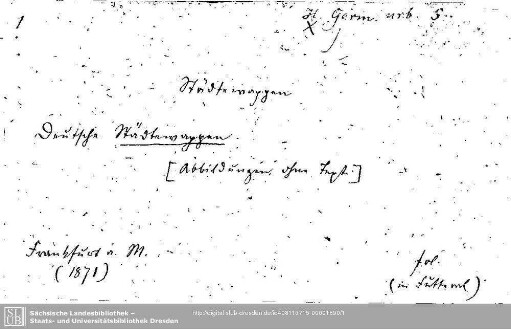 1
H. Germ. urb. 5
Städtewappen
Deutsche Städtewappen.
[Abbildungen, ohne Text.]
Frankfurt a. M.
(1871)
fol.
(in Futteral)
Sächsische Landesbibliothek –
Staats- und Universitätsbibliothek Dresden